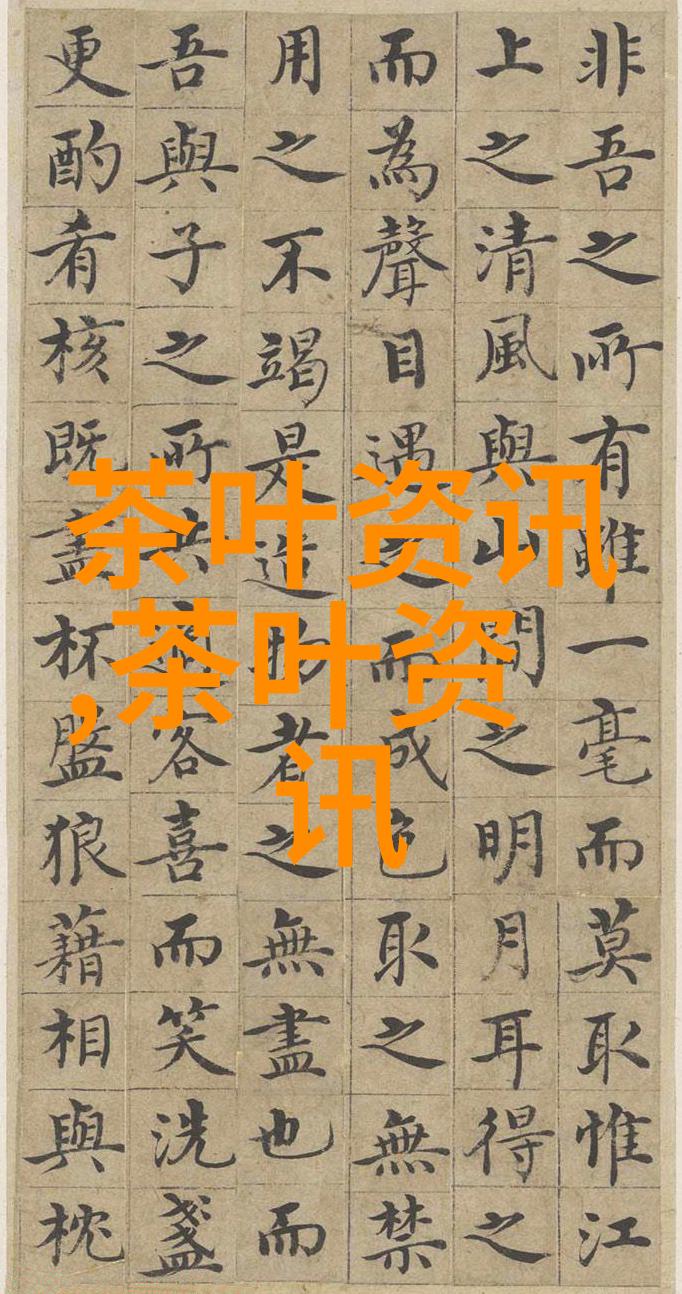 非吾之所有雖一毫而莫取惟江
上之清風與山間之明月耳得之
而為聲目遇之而成色取之無禁
用之不竭是造物者之無盡也而
吾與子之所共適客喜而笑洗盞
更酌肴核既盡杯盤狼藉相與枕
茶叶资讯
,茶叶资
讯